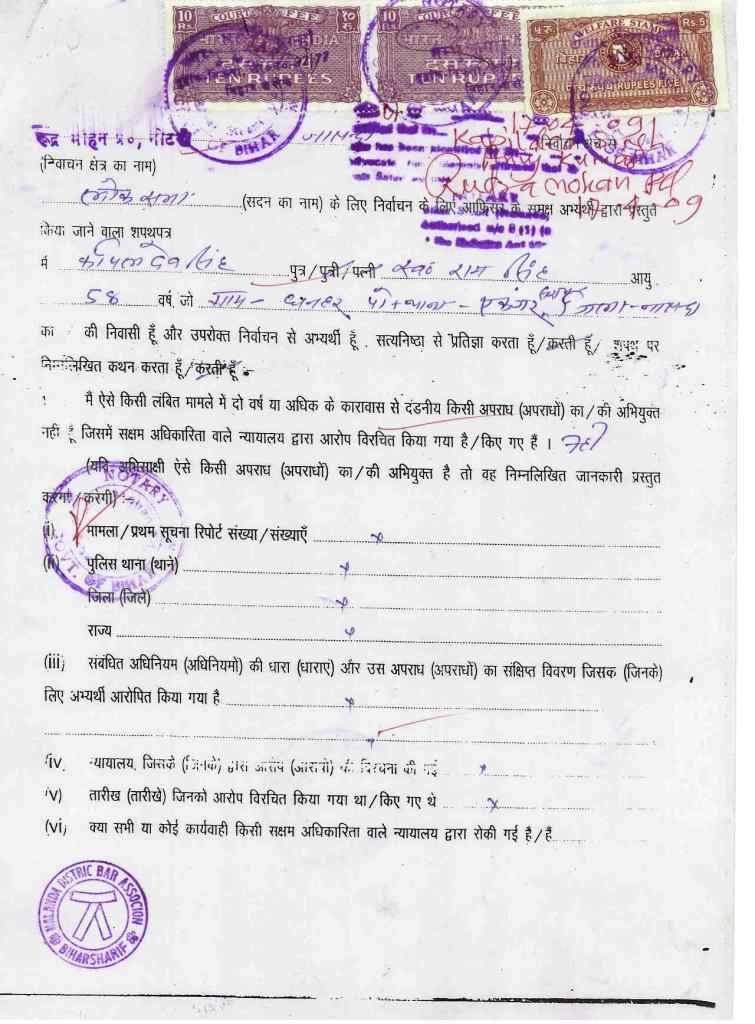 10 COURT FEE १०
Rs. रु.
भारत INDIA
दस रुपये
TEN RUPEES
10 COURT FEE
Rs.
भारत INDIA
TEN RUP
WELFARE STAMP
५ रु. Rs.5
बिहार
RUPEES FIVE
NOTARY
OF BIHAR
रूद्र मोहन प्र०, नोट
नालंदा
17-04-09
निर्वाचन
has been identified
(निर्वाचन क्षेत्र का नाम)
Rudra mohan
17-4-09
लोक सभा (सदन का नाम) के लिए निर्वाचन के लिए आफिसर के समक्ष अभ्यर्थी द्वारा प्रस्तुत
Authorised u/s 8 (1) (a
किया जाने वाला शपथपत्र
the Notaries Act
मैं कपिलदेव सिंह पुत्र/पुत्री/पत्नी स्व० राम सिंह आयु
58 वर्ष, जो ग्राम - धनहर पो + थाना - एकंगर जिला - नालंदा
का / की निवासी हूँ और उपरोक्त निर्वाचन से अभ्यर्थी हूँ , सत्यनिष्ठा से प्रतिज्ञा करता हूँ/करती हूँ/ शपथ पर
निम्नलिखित कथन करता हूँ/करती हूँ -
मैं ऐसे किसी लंबित मामले में दो वर्ष या अधिक के कारावास से दंडनीय किसी अपराध (अपराधों) का/की अभियुक्त
नही हूँ जिसमें सक्षम अधिकारिता वाले न्यायालय द्वारा आरोप विरचित किया गया है/किए गए हैं । नहीं
(यदि अभिसाक्षी ऐसे किसी अपराध (अपराधों) का/की अभियुक्त है तो वह निम्नलिखित जानकारी प्रस्तुत
करेगा/करेगी)
NOTARY
GOVT. OF BIHAR
(i) मामला/प्रथम सूचना रिपोर्ट संख्या/संख्याएँ x
(ii) पुलिस थाना (थाने) x
जिला (जिले) x
राज्य x
(iii) संबंधित अधिनियम (अधिनियमों) की धारा (धाराएं) और उस अपराध (अपराधों) का संक्षिप्त विवरण जिसक (जिनके)
लिए अभ्यर्थी आरोपित किया गया है x
x
(iv) न्यायालय, जिसके (जिनके) द्वारा आरोप (आरोपों) की विरचना की गई x
(v) तारीख (तारीखें) जिनको आरोप विरचित किया गया था/किए गए थे x
(vi) क्या सभी या कोई कार्यवाही किसी सक्षम अधिकारिता वाले न्यायालय द्वारा रोकी गई है/हैं
NALANDA DISTRIC BAR ASSOCION
BIHARSHARIF